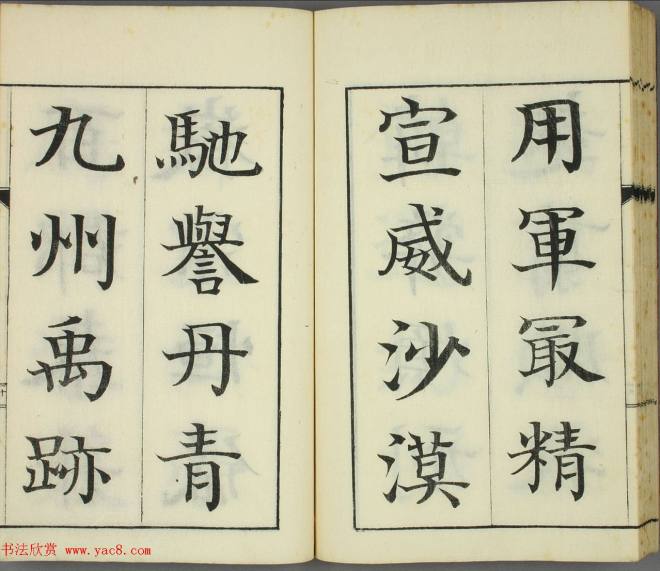 用軍冣精
宣威沙漠
馳譽丹青
九州禹跡
书法欣赏 www.yac8.com